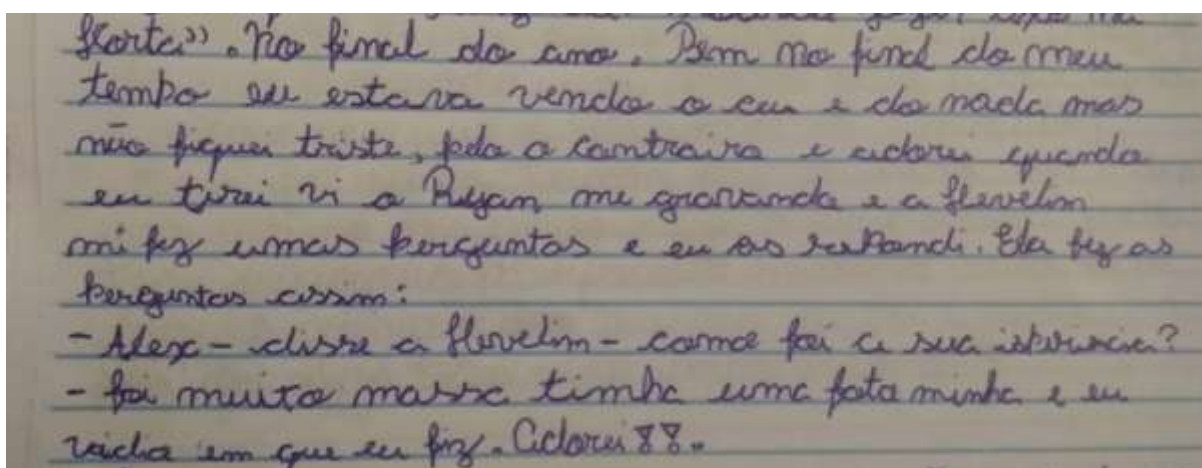 florta". No final do ano. Bem no final do meu
tempo eu estava vendo o ceu e do nada mas
não fiquei triste, pelo o contrairo e adorei quando
eu tirei vi o Ryan me gravando e a Hevelim
mi fez umas perguntas e eu as respondi. Ela fez as
perguntas assim:
- Alex - disse a Hevelim - como foi a sua
- foi muito massa tinha uma foto minha e eu
em que eu fiz. Adorei